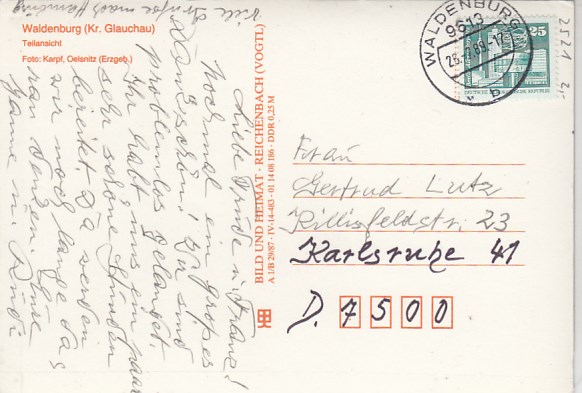 Waldenburg (Kr. Glauchau)
Teilansicht
Foto: Karpf, Oelsnitz (Erzgeb.)
Viele Grüße nach
Liebe Trude u. Franz!
nochmal ein großes
Dankeschön! Wir sind
problemlos gelandet.
Ihr habt uns ein paar
sehr schöne Stunden
bereitet. Da werden
wir noch lange da
ran denken. Eure
u. Rudi
BILD UND HEIMAT · REICHENBACH (VOGTL)
A 1/B 29/87 · IV-14-483 · 01 14 08 166 · DDR 0,25 M
WALDENBURG
9613
25
DEUTSCHE DEMOKRATISCHE REPUBLIK
b
2521
Frau
Gertrud Lutz
Killisfeldstr. 23
Karlsruhe 41
D. 7500